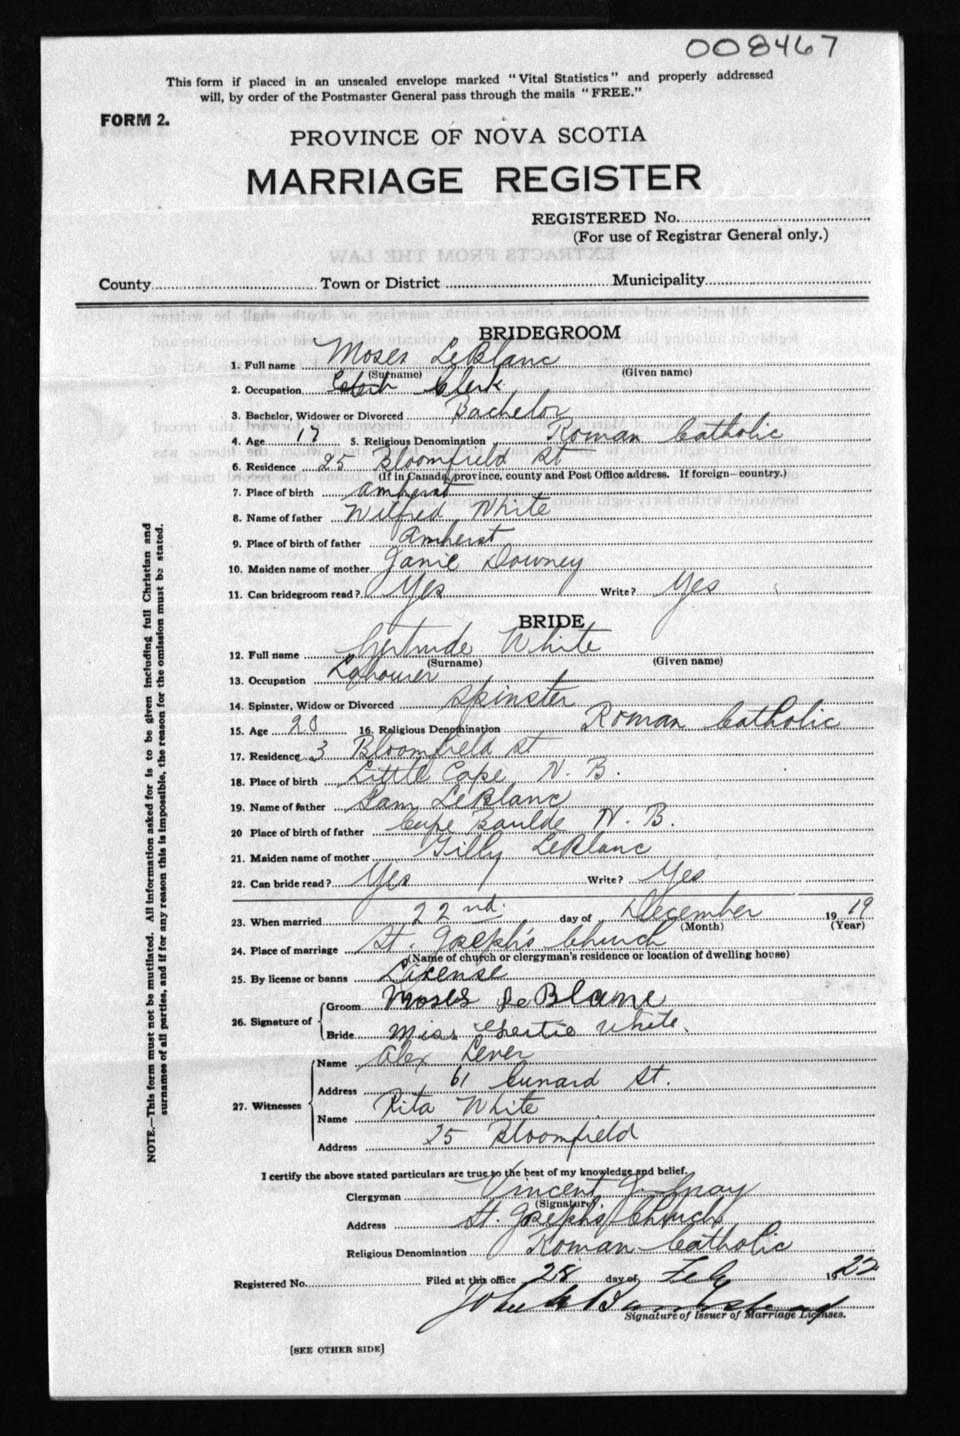 008467
This form if placed in an unsealed envelope marked "Vital Statistics" and properly addressed
will, by order of the Postmaster General pass through the mails "FREE."
FORM 2.
PROVINCE OF NOVA SCOTIA
MARRIAGE REGISTER
REGISTERED No.
(For use of Registrar General only.)
County Town or District Municipality
BRIDEGROOM
1. Full name Moses LeBlanc
(Surname) (Given name)
2. Occupation Clerk
3. Bachelor, Widower or Divorced Bachelor
4. Age 5. Religious Denomination Roman Catholic
6. Residence 25 Bloomfield St
(If in Canada, province, county and Post Office address. If foreign—country.)
7. Place of birth Amherst
8. Name of father Wilfred White
9. Place of birth of father Amherst
10. Maiden name of mother Janie Downey
11. Can bridegroom read? Yes Write? Yes
BRIDE
12. Full name Gertrude White
(Surname) (Given name)
13. Occupation Labourer
14. Spinster, Widow or Divorced Spinster
15. Age 20 16. Religious Denomination Roman Catholic
17. Residence 3 Bloomfield St
18. Place of birth Little Cape, N. B.
19. Name of father Sam LeBlanc
20 Place of birth of father Cape Baulde N. B.
21. Maiden name of mother Tilly LeBlanc
22. Can bride read? Yes Write? Yes
23. When married 22nd. day of December 1919
(Month) (Year)
24. Place of marriage St. Joseph's Church
(Name of church or clergyman's residence or location of dwelling house)
25. By license or banns License
26. Signature of
Groom Moses LeBlanc
Bride Miss Gertie White.
27. Witnesses
Name Alex Lever
Address 61 Cunard St.
Name Rita White
Address 25 Bloomfield
I certify the above stated particulars are true to the best of my knowledge and belief.
Clergyman Vincent J.
(Signature)
Address St. Joseph's Church
Religious Denomination Roman Catholic
Registered No. Filed at this office 28 day of Feb 1922
John
Signature of Issuer of Marriage Licenses.
[SEE OTHER SIDE]
NOTE.—This form must not be mutilated. All information asked for is to be given including full Christian and
surnames of all parties, and if for any reason this is impossible, the reason for the omission must be stated.